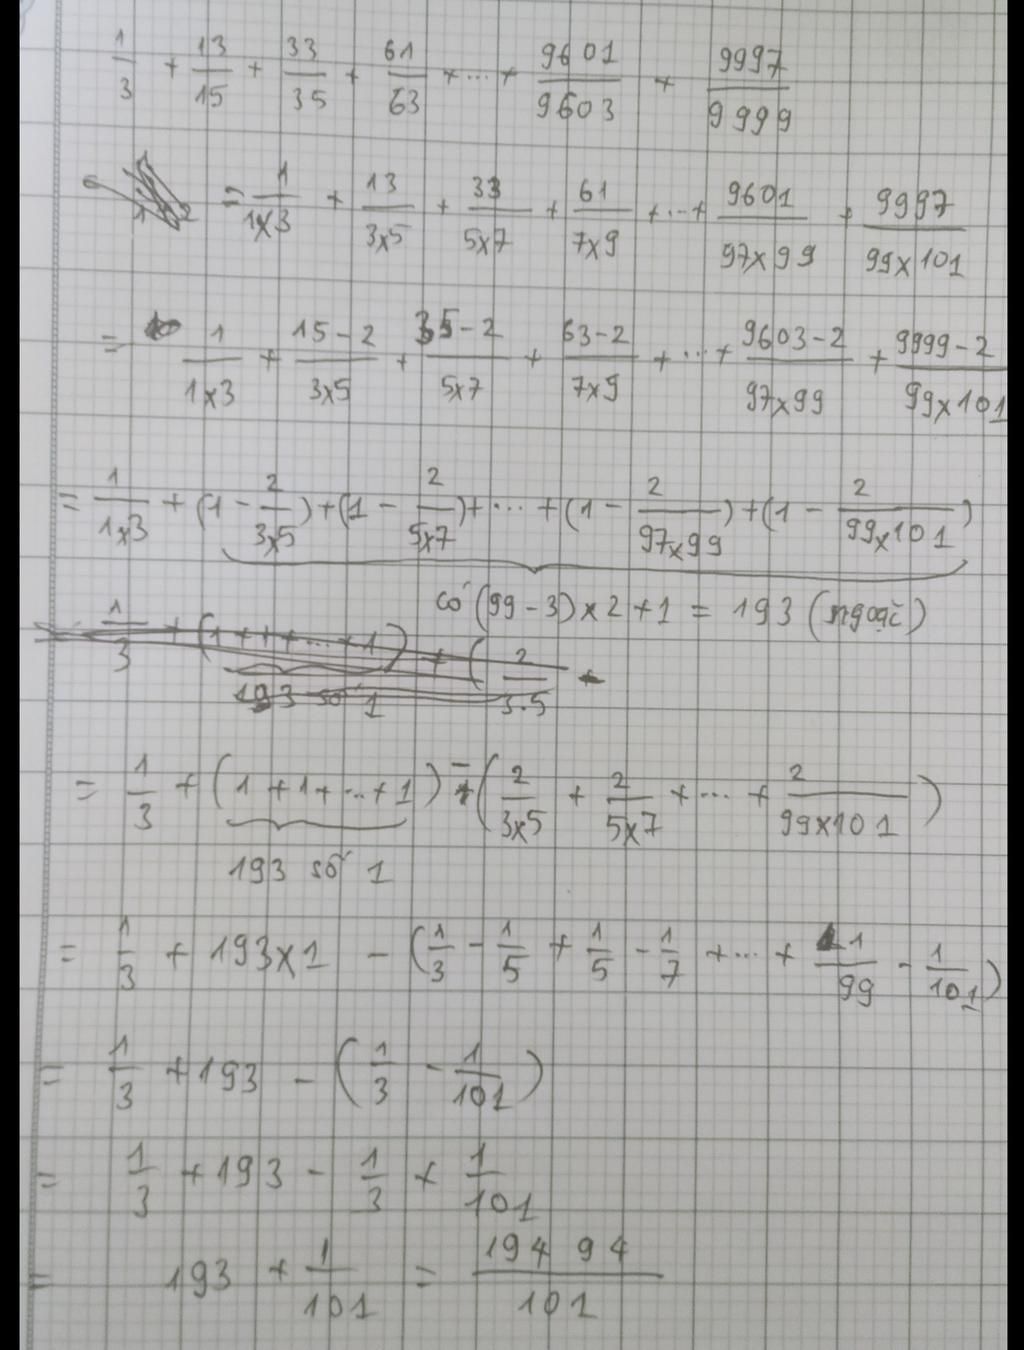 1/3 + 13/15 + 33/35 + 61/63 + ... + 9601/9603 + 9997/9999
= 1/1x3 + 13/3x5 + 33/5x7 + 61/7x9 + ... + 9601/97x99 + 9997/99x101
= 1/1x3 + 15-2/3x5 + 35-2/5x7 + 63-2/7x9 + ... + 9603-2/97x99 + 9999-2/99x101
= 1/1x3 + (1 - 2/3x5) + (1 - 2/5x7) + ... + (1 - 2/97x99) + (1 - 2/99x101)
có (99-3)x2+1 = 193 (ngoặc)
1/3 + (1+1+...+1) + ( 2/3.5 +
193 số 1
= 1/3 + (1+1+...+1) - ( 2/3x5 + 2/5x7 + ... + 2/99x101 )
193 số 1
= 1/3 + 193x1 - ( 1/3 - 1/5 + 1/5 - 1/7 + ... + 1/99 - 1/101 )
= 1/3 + 193 - ( 1/3 - 1/101 )
= 1/3 + 193 - 1/3 + 1/101
= 193 + 1/101 = 19494/101